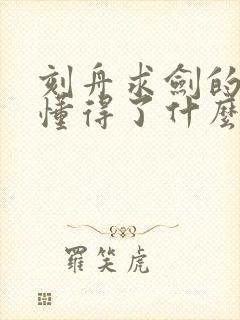 刻舟求劍的
懂得了什麼
羅笑虎